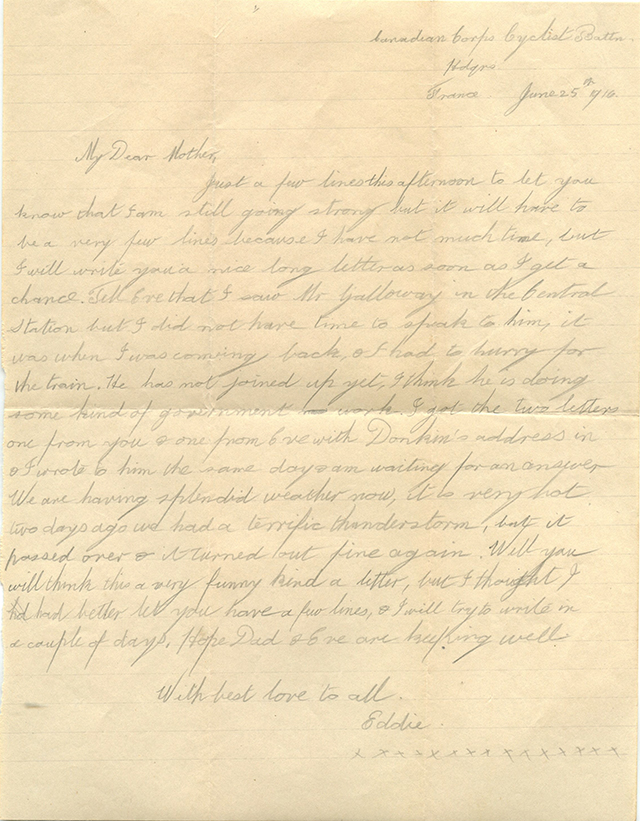 Canadian Corps Cyclist Battn.
Hdqrs.
France June 25th 1916.
My Dear Mother,
Just a few lines this afternoon to let you
know that I am still going strong but it will have to
be a very few lines because I have not much time, but
I will write you a nice long letter as soon as I get a
chance. Tell Eve that I saw Mr Galloway in the Central
Station but I did not have time to speak to him, it
was when I was coming back, & I had to hurry for
the train. He has not joined up yet, I think he is doing
some kind of government work. I got the two letters
one from you & one from Eve with Donkin's address in
& I wrote to him the same day & am waiting for an answer
We are having splendid weather now, it is very hot
two days ago we had a terrific thunderstorm, but it
passed over & it turned out fine again. Well you
will think this a very funny kind a letter, but I thought I
had better let you have a few lines, & I will try to write in
a couple of days. Hope Dad & Eve are keeping well.
With best love to all.
Eddie.
x x x x x x x x x x x x x x